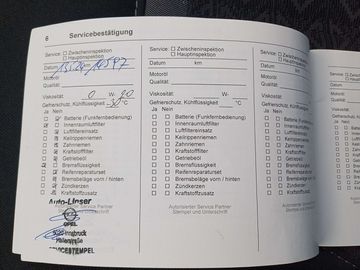 6 Servicebestätigung
Service: Zwischeninspektion
Hauptinspektion
Datum km
Motoröl
Qualität:
Viskosität: 0 W-20
Gefrierschutz, Kühlflüssigkeit °C
Ja Nein
Batterie (Funkfernbedienung)
Innenraumluftfilter
Luftfiltereinsatz
Keilrippenriemen
Zahnriemen
Kraftstofffilter
Getriebeöl
Bremsflüssigkeit
Reifenreparaturset
Bremsbeläge vorn / hinten
Zündkerzen
Kraftstoffzusatz
OPEL
Service: Zwischeninspektion
Hauptinspektion
Datum km
Motoröl
Qualität:
Viskosität: W-
Gefrierschutz, Kühlflüssigkeit °C
Ja Nein
Batterie (Funkfernbedienung)
Innenraumluftfilter
Luftfiltereinsatz
Keilrippenriemen
Zahnriemen
Kraftstofffilter
Getriebeöl
Bremsflüssigkeit
Reifenreparaturset
Bremsbeläge vorn / hinten
Zündkerzen
Kraftstoffzusatz
Autorisierter Service Partner
Stempel und Unterschrift
Service: Zwischeninspektion
Hauptinspektion
Datum km
Motoröl
Qualität:
Viskosität: W-
Gefrierschutz, Kühlflüssigkeit °C
Ja Nein
Batterie (Funkfernbedienung)
Innenraumluftfilter
Luftfiltereinsatz
Keilrippenriemen
Zahnriemen
Kraftstofffilter
Getriebeöl
Bremsflüssigkeit
Reifenreparaturset
Bremsbeläge vorn / hinten
Zündkerzen
Kraftstoffzusatz
Autorisierter Service Partner
Stempel und Unterschrift